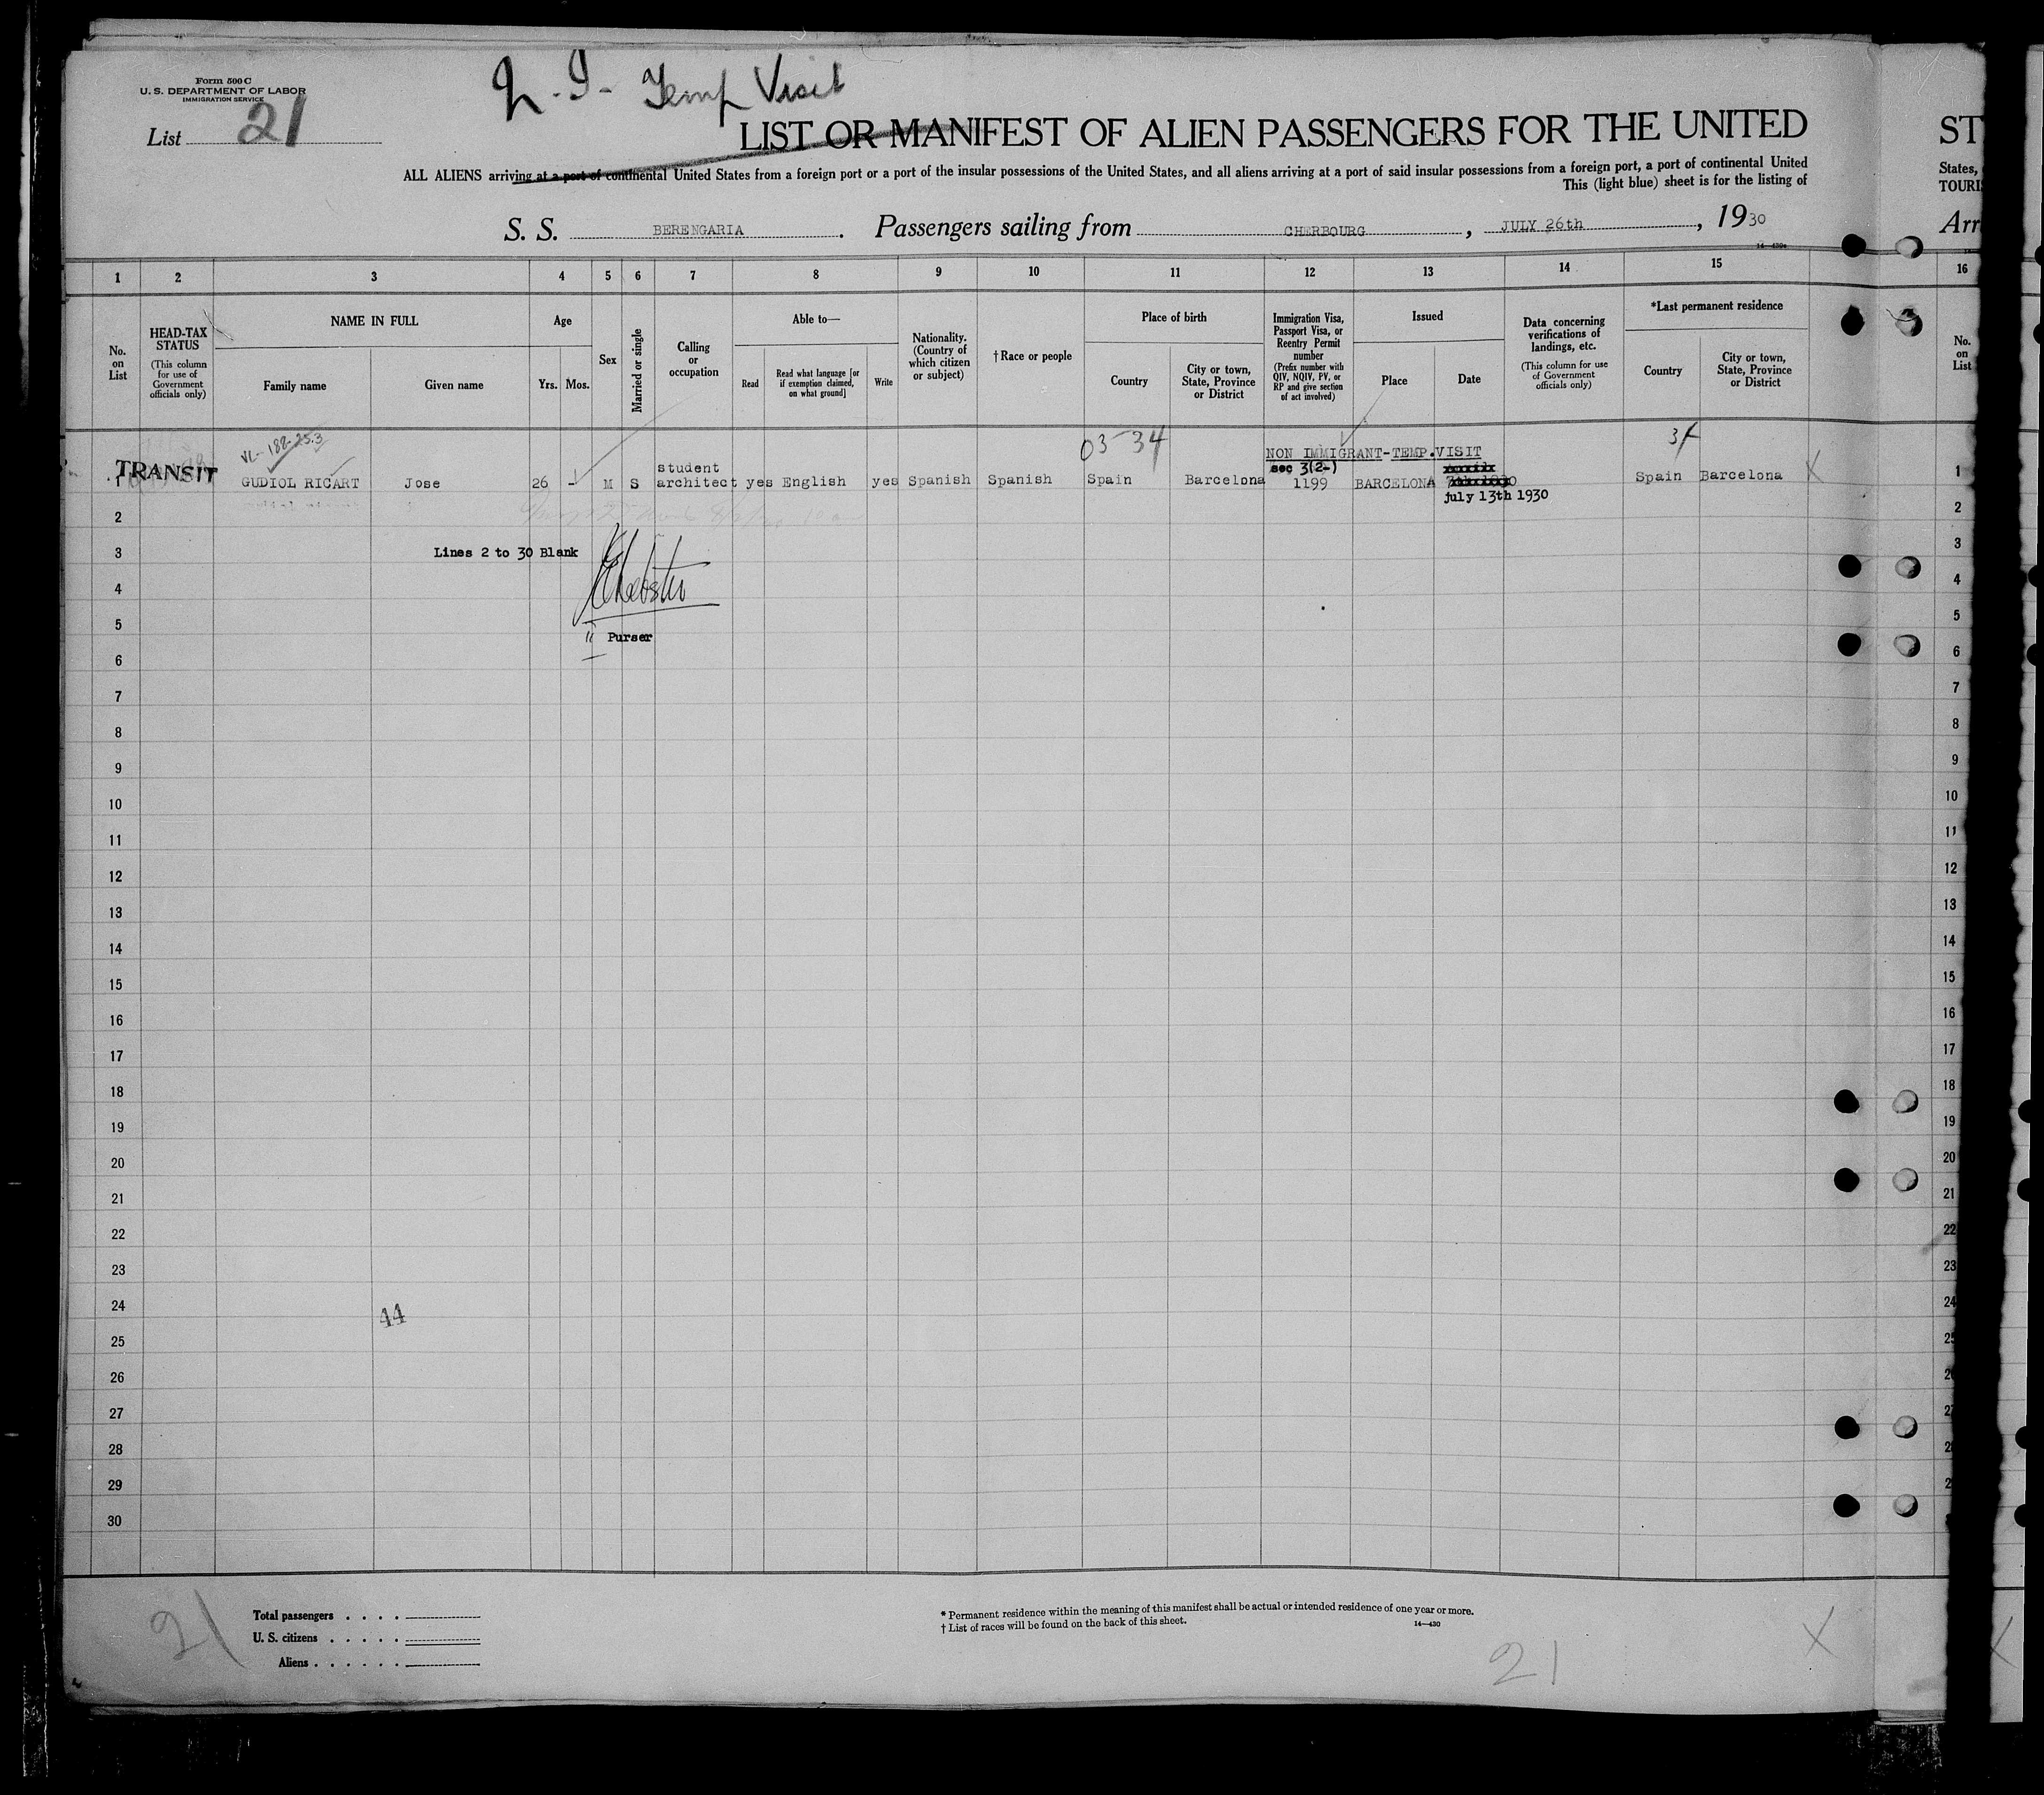 Form 500 C
U. S. DEPARTMENT OF LABOR
IMMIGRATION SERVICE
List 21
Temp Visit
LIST OR MANIFEST OF ALIEN PASSENGERS FOR THE UNITED
ST
ALL ALIENS arriving at a port of continental United States from a foreign port or a port of the insular possessions of the United States, and all aliens arriving at a port of said insular possessions from a foreign port, a port of continental United
States,
This (light blue) sheet is for the listing of
TOURI
S. S. BERENGARIA. Passengers sailing from CHERBOURG, JULY 26th, 1930
Arr
1 2 3 4 5 6 7 8 9 10 11 12 13 14 15 16
No. on List
HEAD-TAX STATUS
(This column for use of Government officials only)
NAME IN FULL
Family name
Given name
Age
Yrs.
Mos.
Sex
Married or single
Calling or occupation
Able to—
Read
Read what language [or if exemption claimed, on what ground]
Write
Nationality. (Country of which citizen or subject)
†Race or people
Place of birth
Country
City or town, State, Province or District
Immigration Visa, Passport Visa, or Reentry Permit number
(Prefix number with QIV, NQIV, PV, or RP and give section of act involved)
Issued
Place
Date
Data concerning verifications of landings, etc.
(This column for use of Government officials only)
*Last permanent residence
Country
City or town, State, Province or District
No. on List
03-34
NON IMMIGRANT-TEMP.VISIT
sec 3(2-)
TRANSIT
1 GUDIOL RICART Jose 26 - M S student architect yes English yes Spanish Spanish Spain Barcelona 1199 BARCELONA july 13th 1930 Spain Barcelona 1
2 2
3 Lines 2 to 30 Blank 3
4 4
5 5
Purser
6 6
7 7
8 8
9 9
10 10
11 11
12 12
13 13
14 14
15 15
16 16
17 17
18 18
19 19
20 20
21 21
22 22
23 23
24 44 24
25
26
27
28
29
30
21
Total passengers
U. S. citizens
Aliens
* Permanent residence within the meaning of this manifest shall be actual or intended residence of one year or more.
† List of races will be found on the back of this sheet.
14—430
21